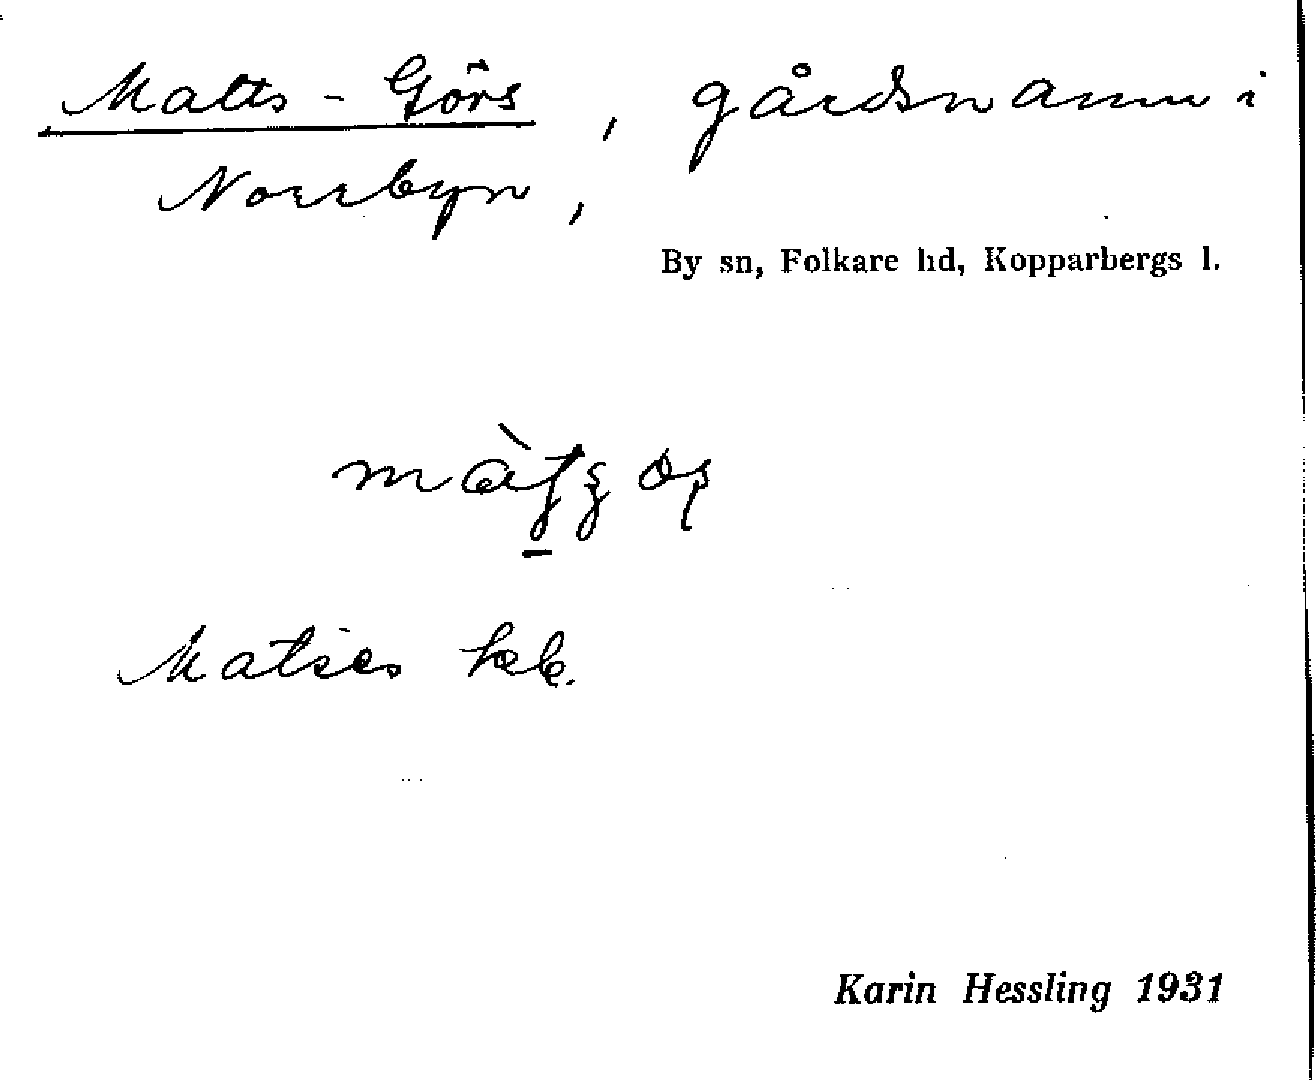 Matts-Görs, gårdsnamn i
Norrbyn,
By sn, Folkare hd, Kopparbergs l.
Matses
Karin Hessling 1931